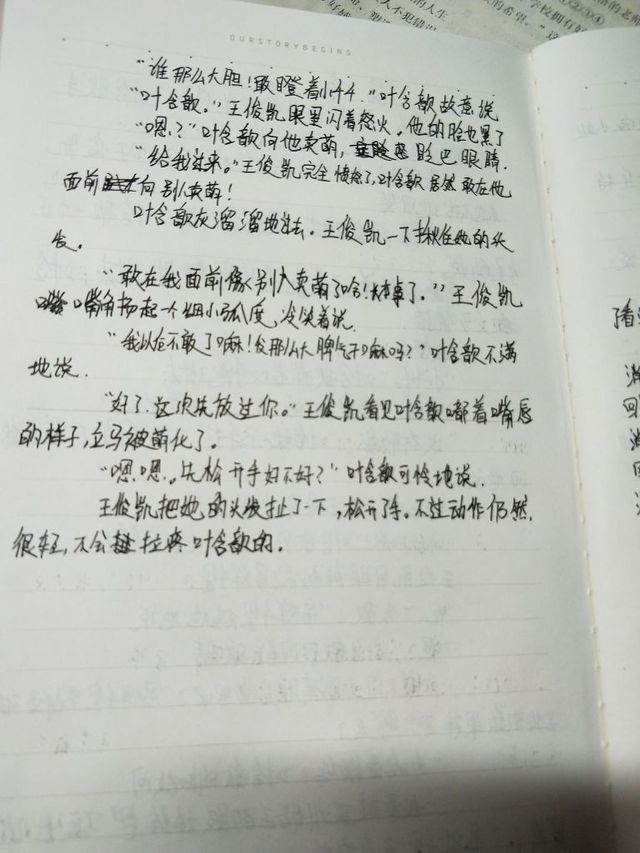 OURSTORYBEGINS
"谁那么大胆!敢瞪着小44."叶含歆故意说
"叶含歆。"王俊凯眼里闪着怒火。他的脸也黑了
"嗯?"叶含歆向他卖萌,眨巴眼睛.
"给我过来。"王俊凯完全愤怒了,叶含歆居然敢在他
面前向别人卖萌!
叶含歆灰溜溜地过去.王俊凯一下揪住她的头
发。
"敢在我面前像别人卖萌了哈!了。"王俊凯
嘴角扬起一个细小弧度,冷笑着说.
"我以后不敢了嘛!发那么大脾气干嘛吗?"叶含歆不满
地说.
"好了.这次先放过你。"王俊凯看见叶含歆嘟着嘴唇
的样子,立马被萌化了。
"嗯嗯。先松开手好不好?"叶含歆可怜地说.
王俊凯把她的头发扯了一下,松开了手。不过动作仍然
很轻,不会拉疼叶含歆的.